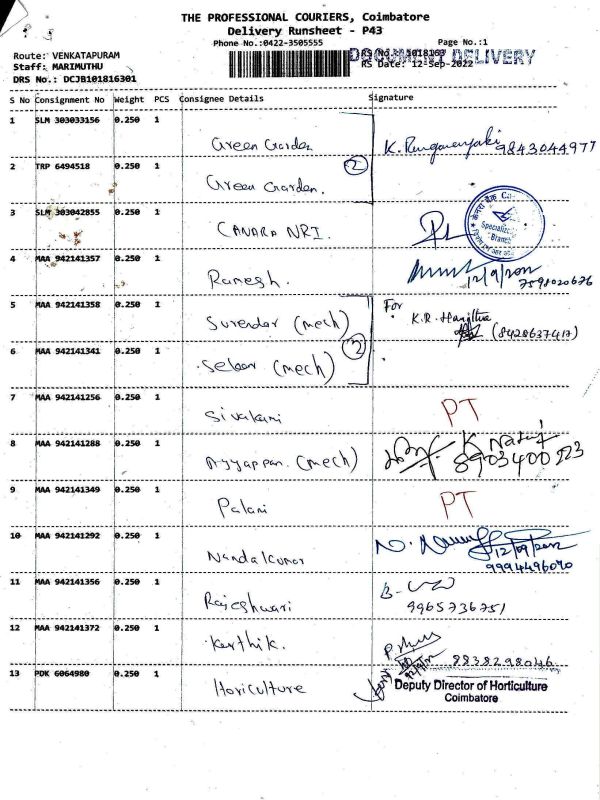 THE PROFESSIONAL COURIERS, Coimbatore
Delivery Runsheet - P43
Phone No.:0422-3505555
Page No.:1
Route: VENKATAPURAM
DOCUMENT DELIVERY
Staff: MARIMUTHU
RS Date: 12-Sep-2022
DRS No.: DCJB101816301
S No Consignment No Weight PCS Consignee Details Signature
1 SLM 303033156 0.250 1 Green Garden K. Renganayaki 9843044977
2 TRP 6494518 0.250 1 Green Garden. 2
3 SLM 303042855 0.250 1 CANARA NRI.
Specialized
Branch
4 MAA 942141357 0.250 1 Ramesh. 12/9/2022
7598020676
5 MAA 942141358 0.250 1 Surendar (mech) For
K.R. Haritha
(8428637417)
6 MAA 942141341 0.250 1 Selvar (mech) 2
7 MAA 942141256 0.250 1 Sivakami PT
8 MAA 942141288 0.250 1 Ayyappan. (mech) 8903400523
9 MAA 942141349 0.250 1 Palani PT
10 MAA 942141292 0.250 1 Nandalkumar 12/09/2022
9994496070
11 MAA 942141356 0.250 1 Rajeshwari
9965736751
12 MAA 942141372 0.250 1 Karthik.
8838298046
13 PDK 6064980 0.250 1 Horiculture Deputy Director of Horticulture
Coimbatore